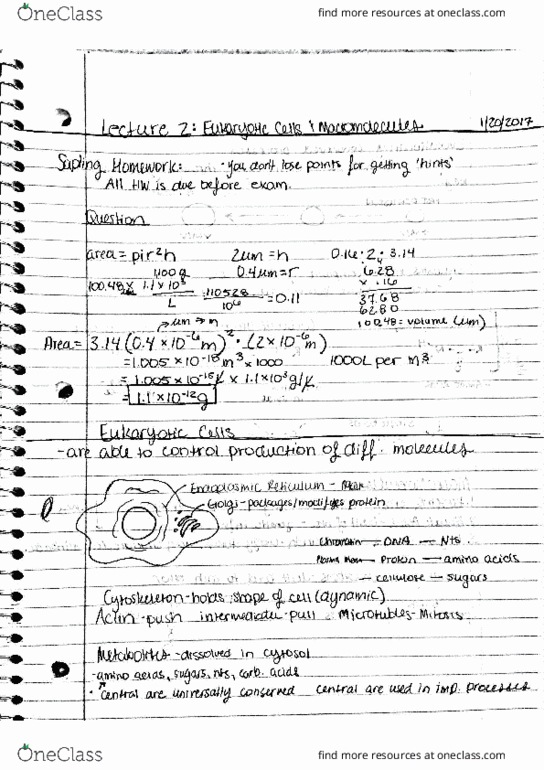 OneClass
find more resources at oneclass.com
Lecture 2: Eukaryotic Cells & Macromolecules 1/20/2017
Sapling Homework: · you don't lose points for getting 'hints'
All HW is due before exam.
Question
area = pir²h 2um = h 0.16 · 2 · 3.14
1100g 0.4um = r 6.28
100.48 x 1.1 x 10³ 110528 = 0.11 x .16
L 10⁶ 3768
6280
um → m 100.48 = volume (um)
Area = 3.14 (0.4 x 10⁻⁶m)² · (2 x 10⁻⁶m)
= 1.005 x 10⁻¹⁸ m³ x 1000 1000L per m³
= 1.005 x 10⁻¹⁵ L x 1.1 x 10³ g/L
= 1.1 x 10⁻¹² g
Eukaryotic Cells
- are able to control production of diff. molecules
Endoplasmic Reticulum -
Golgi - packages/modifyes protein
Chromatin — DNA — Nts
Plasma Mem — Protein — amino acids
— cellulose — sugars
Cytoskeleton - holds shape of cell (dynamic)
Actin - push intermediate - pull Microtubles - Mitosis
Metabolites - dissolved in cytosol
- amino acids, sugars, nts, carb. acids
· central are universally conserved central are used in imp. processes
OneClass
find more resources at oneclass.com